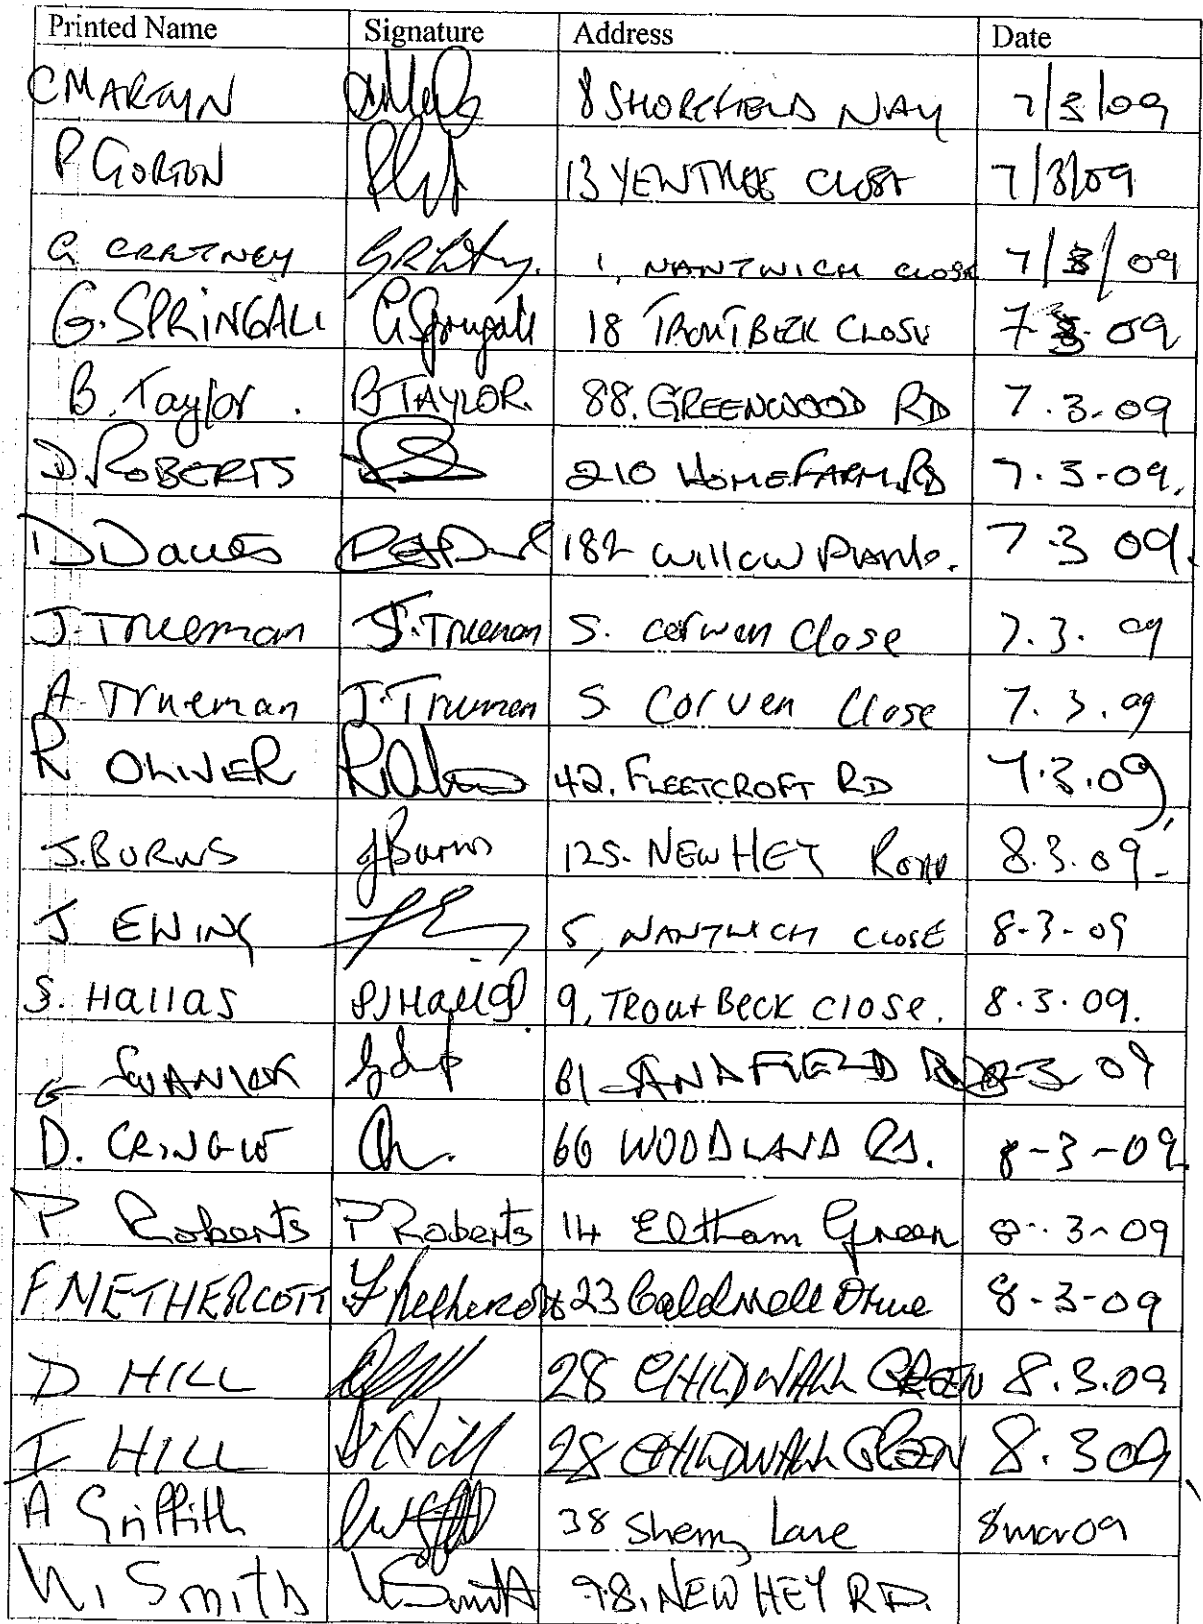 Printed Name Signature Address Date
C MARTYN 8 SHOREFIELDS WAY 7/3/09
P GORTON 13 YEWTREE CLOSE 7/3/09
G CRATNEY 1, NANTWICH CLOSE 7/3/09
G. SPRINGALL G Springall 18 TROUTBECK CLOSE 7 3. 09
B. Taylor. B TAYLOR. 88. GREENWOOD RD 7.3.09
D. ROBERTS 210 HOMEFARM RD 7.3.09.
D Davies 182 Willow 7.3 09.
J. Trueman J. Trueman 5. Corwen Close 7.3. 09
A. Trueman J. Trueman 5 Corven Close 7.3.09
R OLIVER 42. FLEETCROFT RD 7.3.09
J. BURNS J Burns 125. NEW HEY ROAD 8.3.09.
J EWING 5, NANTWICH CLOSE 8-3-09
S. Hallas SJ Hallas 9, Trout Beck close. 8.3.09.
G 61 SANDFIELD RD 8-3 09
D. CRINGLE 66 WOODLAND RD. 8-3-09
P Roberts P Roberts 14 Eltham Green 8.3-09
F NETHERCOTT F Nethercott 23 Caldwell Drive 8-3-09
D HILL 28 CHILDWALL GREEN 8.3.09
I HILL I Hill 28 CHILDWALL GREEN 8.3 09
A Griffith 38 Sherry Lane 8 mar 09
W. Smith W Smith 98, NEW HEY RD.